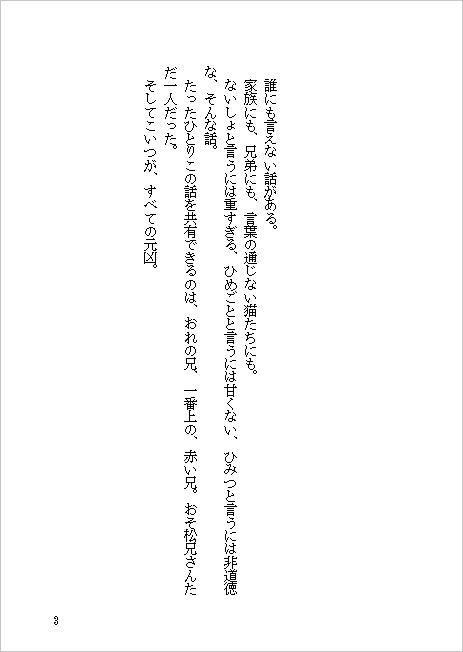 誰にも言えない話がある。
家族にも、兄弟にも、言葉の通じない猫たちにも。
ないしょと言うには重すぎる、ひめごとと言うには甘くない、ひみつと言うには非道徳
な、そんな話。
たったひとりこの話を共有できるのは、おれの兄、一番上の、赤い兄。おそ松兄さんた
だ一人だった。
そしてこいつが、すべての元凶。
3